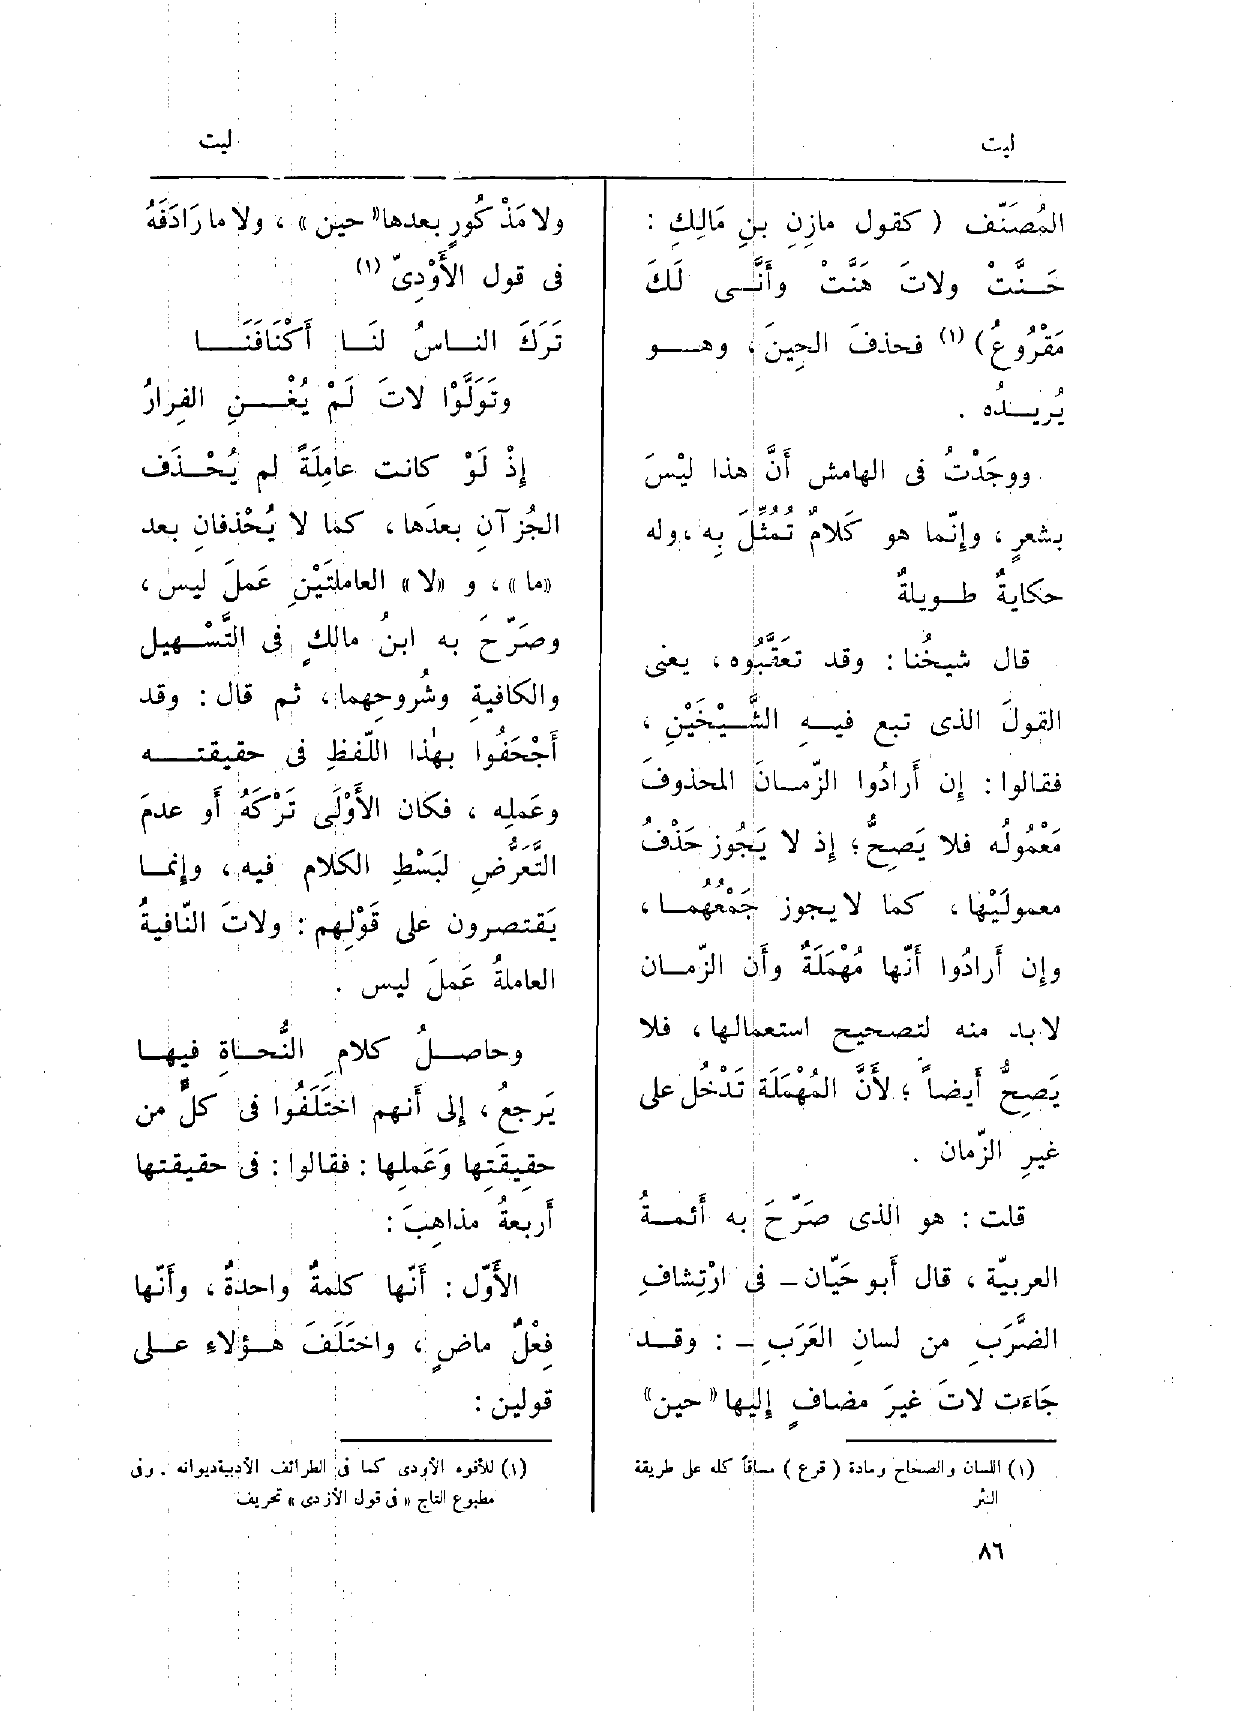 ليت
ليت
المُصَنّف ( كقول مازِنِ بنِ مَالِكِ :
حَــنَّتْ ولاتَ هَنَّتْ وأَنَّــى لَكَ
مَقْرُوعُ) (١) فحذفَ الحِينَ ، وهــو
يُريــده .
ووجَدْتُ فى الهامش أَنَّ هذا ليْسَ
بشعرٍ ، وإنّما هو كَلامٌ تُمُثِّلَ بِه ، وله
حكايةٌ طــويلةٌ
قال شيخُنا : وقد تعَقَّبُوه ، يعنى
القولَ الذى تبع فيــه الشَّــيْخَيْنِ ،
فقالوا : إن أَرادُوا الزّمــانَ المحذوفَ
مَعْمُولُه فلا يَصِحُّ ؛ إذ لا يَجُوز حَذْفُ
معموليْها ، كما لا يجوز جَمْعُهُمــا ،
وإن أَرادُوا أَنّها مُهْمَلَةٌ وأَن الزّمــان
لابد منه لتصحيح استعمالها ، فلا
يَصِحُّ أَيضاً ؛ لأَنَّ المُهْمَلَة تَدْخُل على
غيرِ الزّمان .
قلت : هو الذى صَرّحَ به أَئمــةُ
العربيّة ، قال أَبو حَيّان – فى ارْتِشافِ
الضَّرَبِ من لسانِ العَرَبِ – : وقــد
جَاءَت لاتَ غيرَ مضافٍ إليها «حين»
(١) اللسان والصحاح ومادة ( قرع ) مساقاً كله على طريقة
النثر
٨٦
ولا مَذْكُورٍ بعدها «حين» ، ولا ما رَادَفَهُ
فى قول الأَوْدِىّ (١)
تَرَكَ النــاسُ لنَــا أَكْنَافَنَــا
وتَوَلَّوْا لاتَ لَمْ يُغْــنِ الفِرارُ
إِذْ لَوْ كانت عامِلَةً لم يُحْــذَف
الجُزآنِ بعدَها ، كما لا يُحْذفانِ بعد
«ما» ، و «لا» العاملتَيْنِ عَملَ ليس ،
وصَرّحَ به ابنُ مالكٍ فى التَّسْــهيل
والكافيةِ وشُروحِهما ، ثم قال : وقد
أَجْحَفُوا بهٰذا اللّفظِ فى حقيقتــه
وعَملِه ، فكان الأَوْلَى تَرْكَهُ أَو عدمَ
التَّعَرُّضِ لبَسْطِ الكلامِ فيه ، وإنما
يَقتصرون على قَوْلِهم : ولاتَ النّافيةُ
العاملةُ عَملَ ليس .
وحاصــلُ كلامِ النُّحــاةِ فيهــا
يَرجعُ ، إلى أَنهم اختَلَفُوا فى كلٍّ من
حقيقَتِها وَعَملِها : فقالوا : فى حقيقتها
أَربعةُ مذاهِبَ :
الأَوّل : أَنّها كلمةٌ واحدةٌ ، وأَنّها
فِعْلٌ ماضٍ ، واختَلَفَ هــؤلاءِ علــى
قولين :
(١) للأفوه الأودى كما فى الطرائف الأدبية ديوانه . وفى
مطبوع التاج « فى قول الأزدى » تحريف